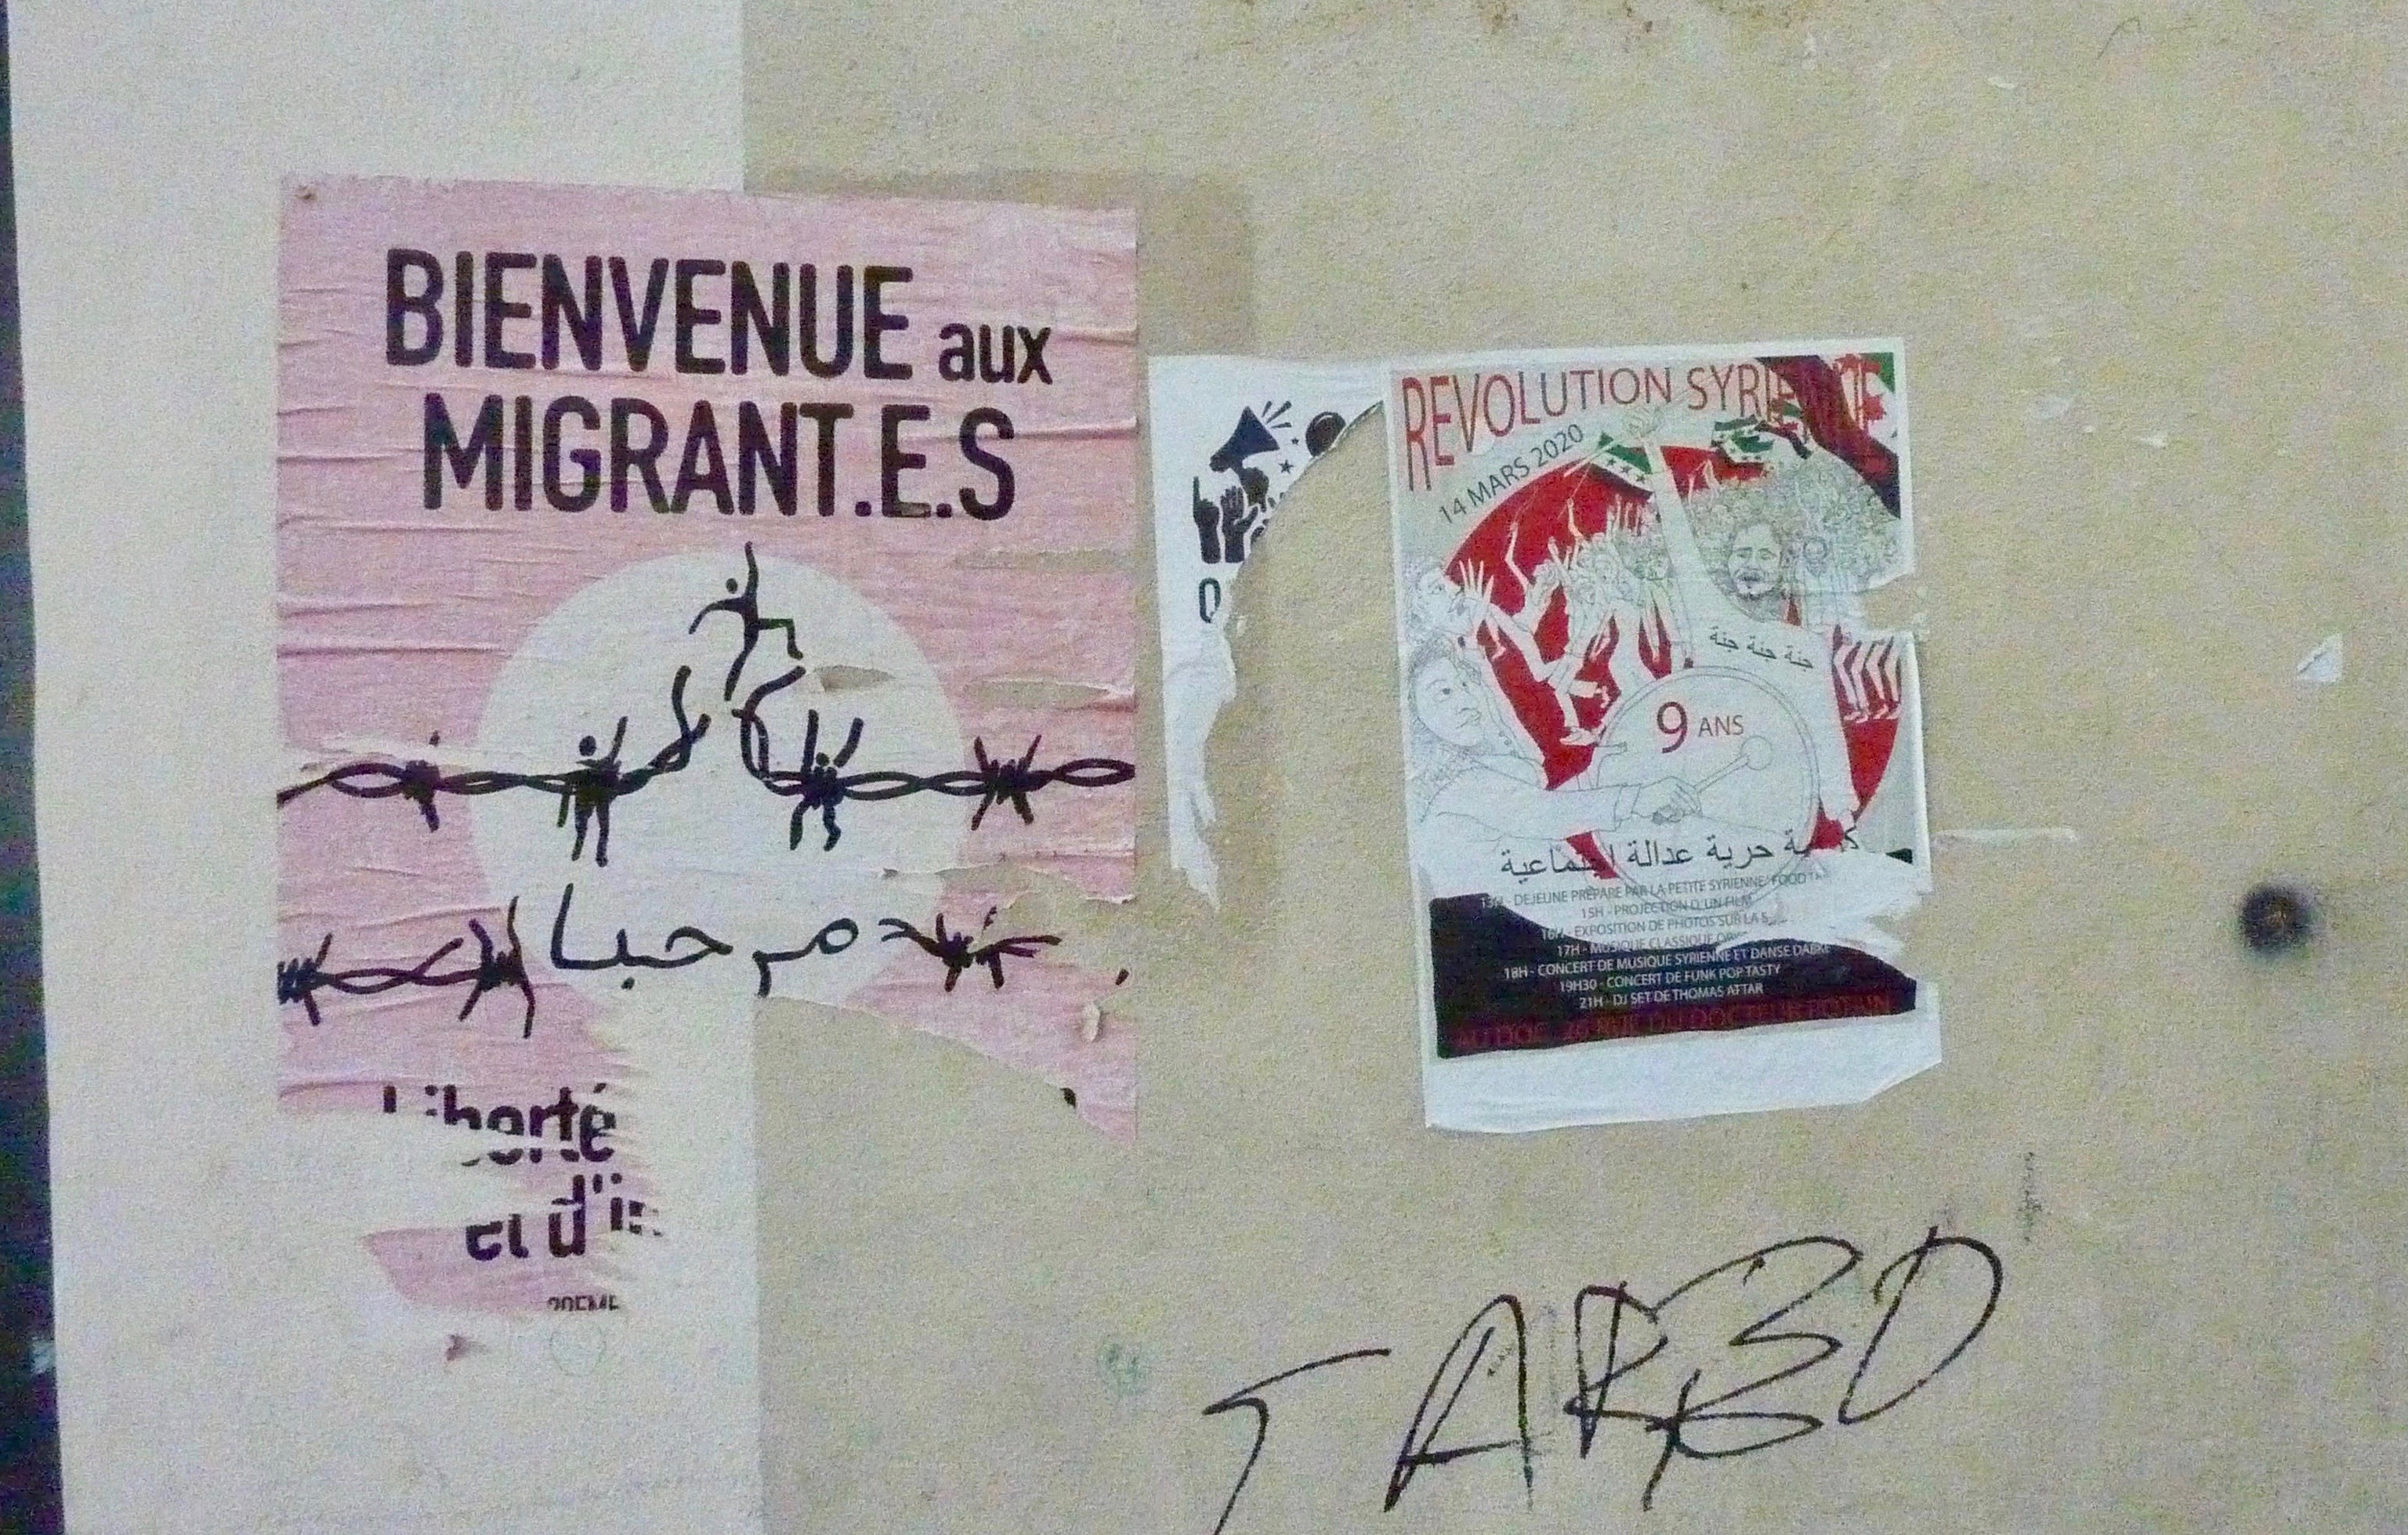 BIENVENUE aux
MIGRANT.E.S
مرحبا
Liberté
et d'i
20EME
REVOLUTION SYRIENNE
14 MARS 2020
جنة جنة جنة
9 ANS
كرامة حرية عدالة اجتماعية
13H - DEJEUNE PREPARE PAR LA PETITE SYRIENNE FOOD
15H - PROJECTION D'UN FILM
16H - EXPOSITION DE PHOTOS SUR LA
17H - MUSIQUE CLASSIQUE
18H - CONCERT DE MUSIQUE SYRIENNE ET DANSE DABKE
19H30 - CONCERT DE FUNK POP TASTY
21H - DJ SET DE THOMAS ATTAR
AU DOC 26 RUE DU DOCTEUR POTAIN